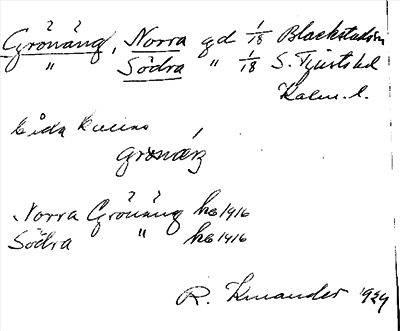 Grönäng, Norra gd 1/18 Blackstads
" Södra " 1/18 S. Tjusts hd
Kalm. l.
båda kallas
gronäŋ
Norra Grönäng hs 1916
Södra " hs 1916
R. Kinander 1929